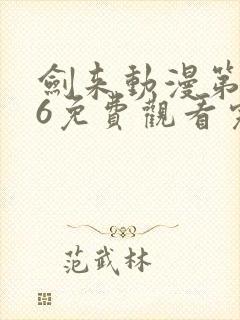 劍来動漫第
6免費觀看完
范武林